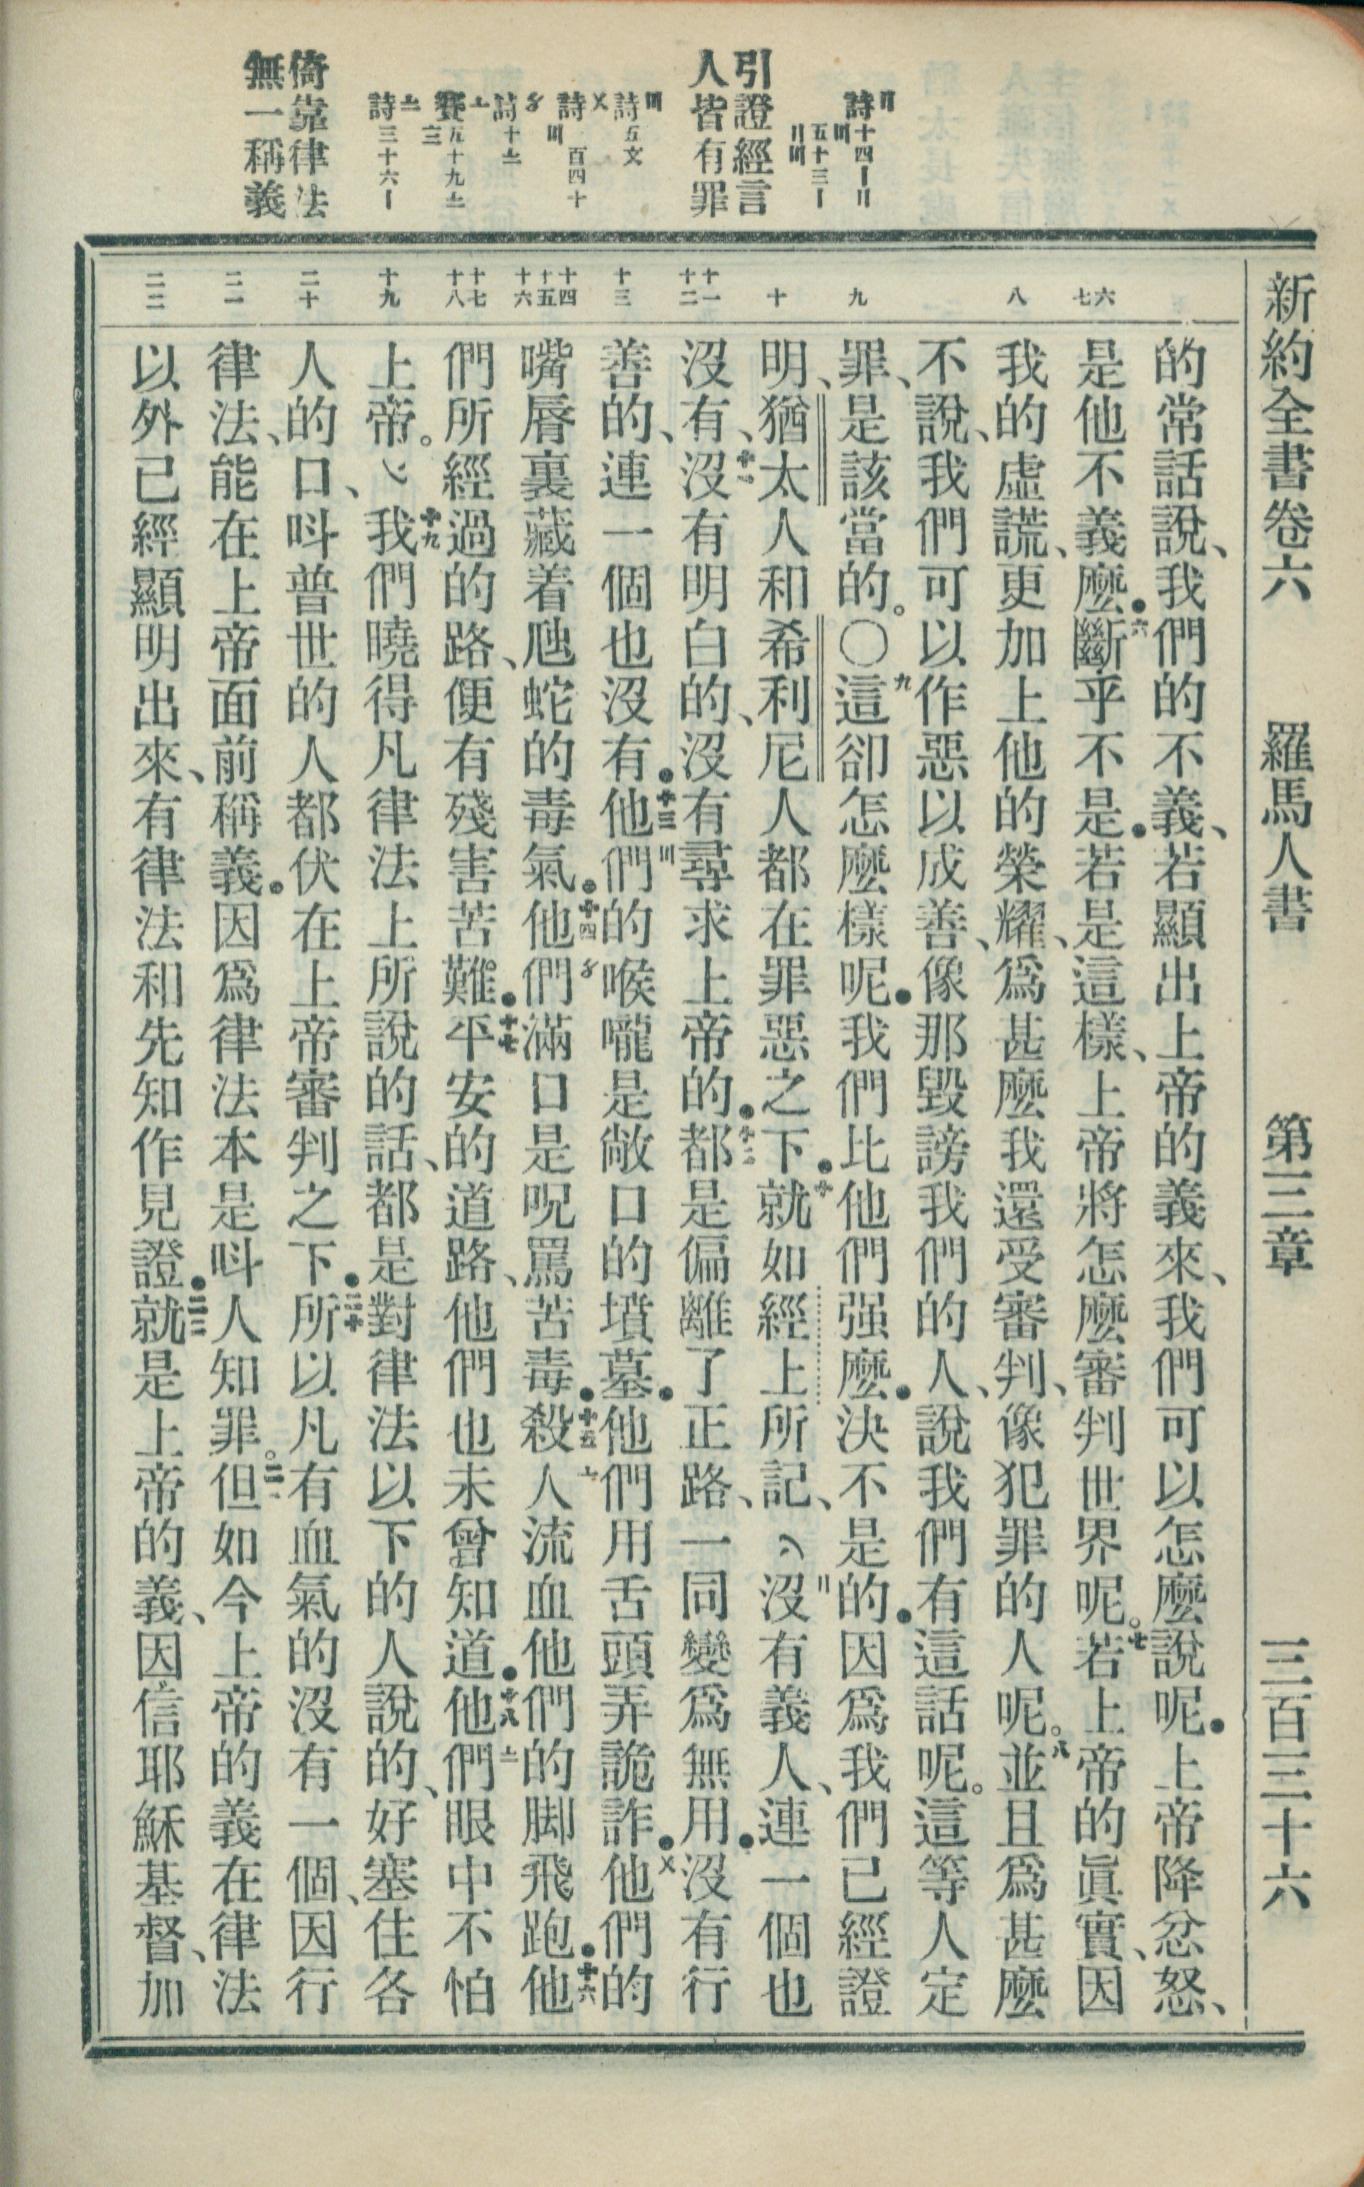 新約全書卷六　羅馬人書　第三章　三百三十六
引證經言
人皆有罪
倚靠律法
無一稱義
六
七
八
九
十
十一
十二
十三
十四
十五
十六
十七
十八
十九
二十
二一
二二
的常話說、我們的不義、若顯出上帝的義來、我們可以怎麼說呢．上帝降忿怒、
是他不義麼．六斷乎不是．若是這樣、上帝將怎麼審判世界呢。七若上帝的眞實、因
我的虛謊、更加上他的榮耀、爲甚麼我還受審判、像犯罪的人呢。八並且爲甚麼
不說、我們可以作惡以成善、像那毀謗我們的人、說我們有這話呢。這等人定
罪、是該當的。○九這卻怎麼樣呢．我們比他們强麼．決不是的．因爲我們已經證
明、猶太人和希利尼人都在罪惡之下．十就如經上所記、沒有義人、連一個也
沒有、十一沒有明白的、沒有尋求上帝的．十二都是偏離了正路、一同變爲無用．沒有行
善的、連一個也沒有．十三他們的喉嚨是敞口的墳墓．他們用舌頭弄詭詐．他們的
嘴唇裏藏着虺蛇的毒氣．十四他們滿口是呪罵苦毒．十五殺人流血他們的脚飛跑．十六他
們所經過的路、便有殘害苦難．十七平安的道路、他們也未曾知道．十八他們眼中不怕
上帝。十九我們曉得凡律法上所說的話、都是對律法以下的人說的、好塞住各
人的口、呌普世的人都伏在上帝審判之下．二十所以凡有血氣的沒有一個、因行
律法、能在上帝面前稱義．因爲律法本是呌人知罪。二一但如今上帝的義在律法
以外已經顯明出來、有律法和先知作見證．二二就是上帝的義、因信耶穌基督、加